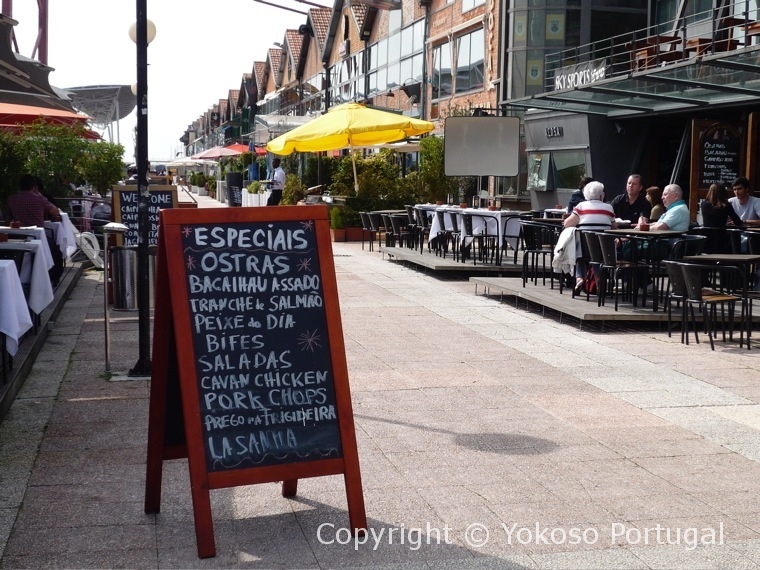 ESPECIAIS
OSTRAS
BACALHAU ASSADO
TRANCHE de SALMÃO
PEIXE do DIA
BIFES
SALADAS
CAVAN CHICKEN
PORK CHOPS
PREGO NA FRIGIDEIRA
LASANHA
WELCOME
SPORTS
Copyright © Yokoso Portugal